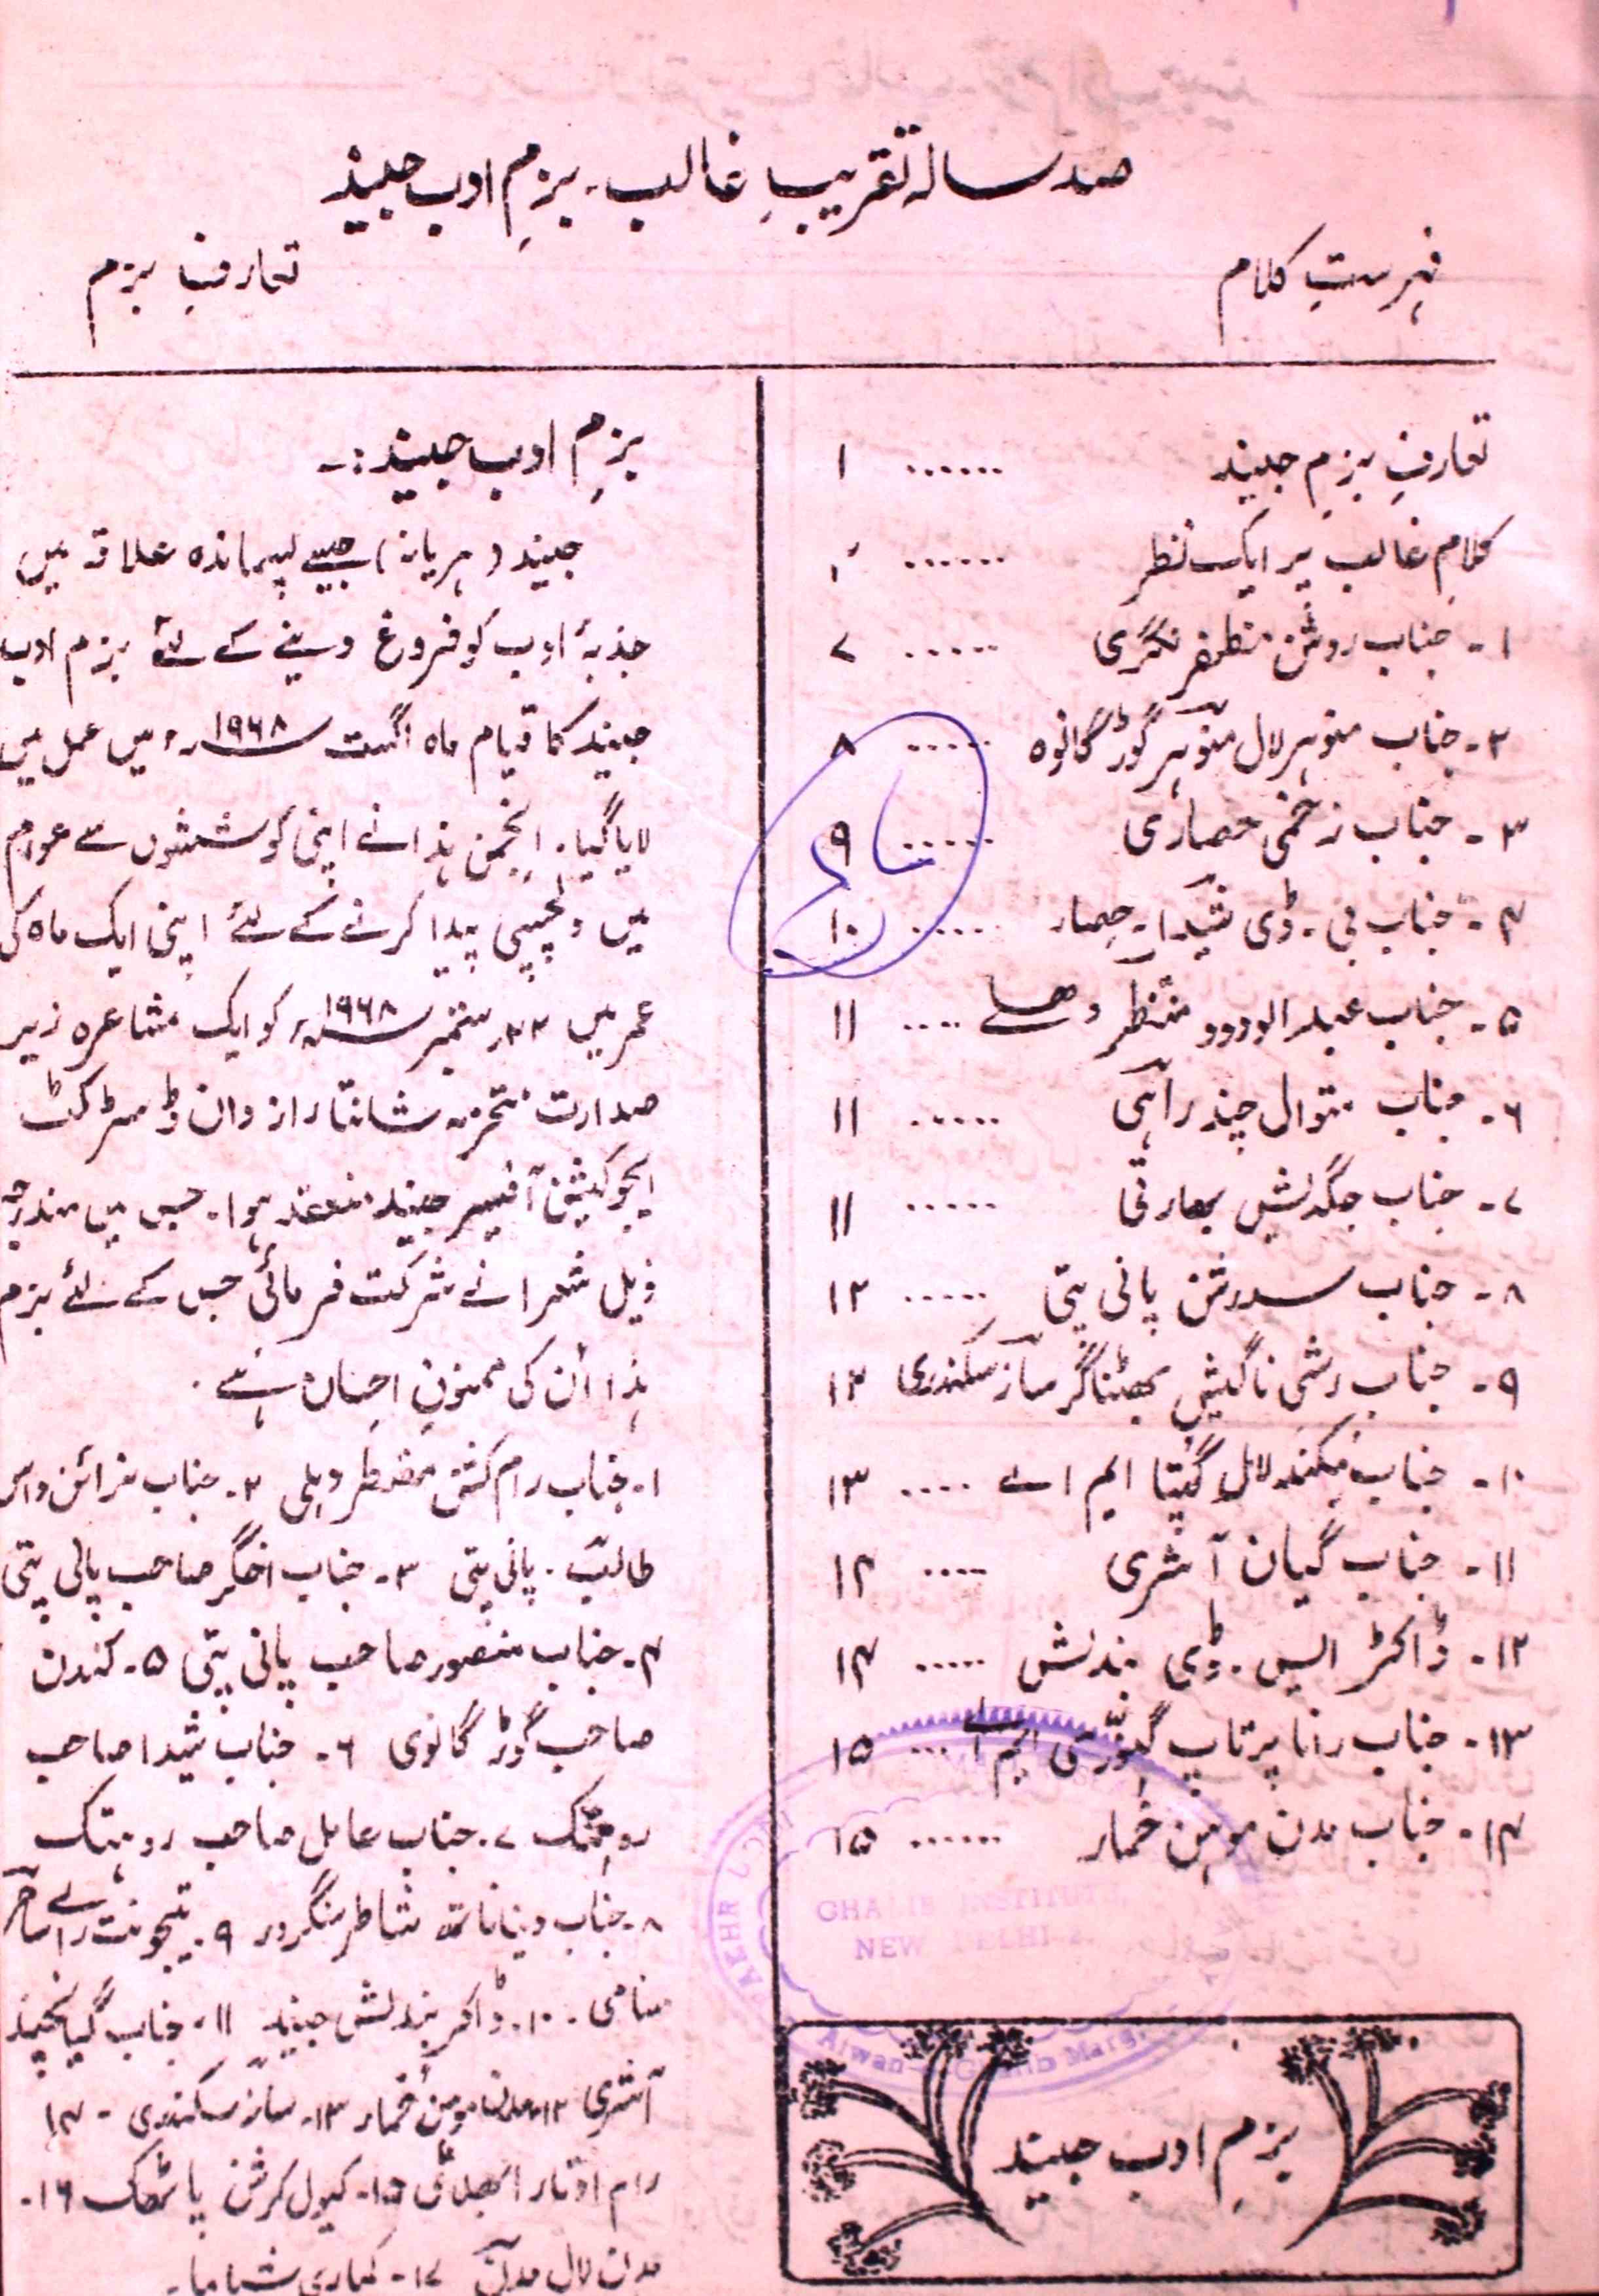 صد سالہ تقریبِ غالب۔ بزمِ ادب جیند
فہرستِ کلام
تعارفِ بزم
تعارفِ بزمِ جیند ...... ۱
کلامِ غالب پر ایک نظر ......
۱۔ جناب روشن مظفر نگری ..... ۷
۲۔ جناب منوہر لال منوہر گوڑگانوہ ..... ۸
۳۔ جناب زخمی حصاری ..... ۹
۴۔ جناب بی۔ ڈی شیدا۔ حصار ..... ۱۰
۵۔ جناب عبدالودود منتظر .... ۱۱
۶۔ جناب متوال چند راہی ..... ۱۱
۷۔ جناب جگدیش بھارتی ..... ۱۱
۸۔ جناب سدرشن پانی پتی ..... ۱۲
۹۔ جناب رشی ناگیش بھٹناگر ساز سکندری ۱۲
۱۰۔ جناب مکند لال گپتا ایم اے .... ۱۳
۱۱۔ جناب گیان آشری .... ۱۴
۱۲۔ ڈاکٹر ایس۔ ڈی بندلش ..... ۱۴
۱۳۔ جناب رانا پرتاپ ایم اے ... ۱۵
۱۴۔ جناب مدن موہن خمار ...... ۱۵
GHALIB INSTITUTE,
NEW DELHI-2.
Aiwan-e-Ghalib Marg,
بزمِ ادب جیند
بزمِ ادب جیند:۔
جیند (ہریانہ) جیسے پسماندہ علاقہ میں
جذبۂ ادب کو فروغ دینے کے لئے بزم ادب
جیند کا قیام ماہ اگست ۱۹۶۸ء میں عمل میں
لایا گیا۔ انجمن ہذا نے اپنی کوششوں سے عوام
میں دلچسپی پیدا کرنے کے لئے اپنی ایک ماہ کی
عمر میں ۲۲ ستمبر ۱۹۶۸ء کو ایک مشاعرہ زیر
صدارت محترمہ شانتا رازدان ڈسٹرکٹ
ایجوکیشن آفیسر جیند منعقد ہوا۔ جس میں مندرجہ
ذیل شعرا نے شرکت فرمائی جس کے لئے بزم
ہذا اُن کی ممنونِ احسان ہے۔
۱۔ جناب رام کشن مضطر دہلی ۲۔ جناب نرائن داس
طالب۔ پانی پتی ۳۔ جناب اخگر صاحب پانی پتی
۴۔ جناب منصور صاحب پانی پتی ۵۔ کندن
صاحب گوڑگانوی ۶۔ جناب شیدا صاحب
روہتک ۷۔ جناب عامل صاحب روہتک
۸۔ جناب دینا ناتھ شاطر سنگرور ۹۔ تیجونت رائے ساحر
سنامی۔ ۱۰۔ ڈاکٹر بندلش جیند ۱۱۔ جناب گیانچند
آشری ۱۲۔ مدن موہن خمار ۱۳۔ ساز سکندری ۔ ۱۴
رام اوتار ۱۵۔ کیول کرشن پاٹھک ۱۶۔
مدن لال مدن ۱۷۔ کماری